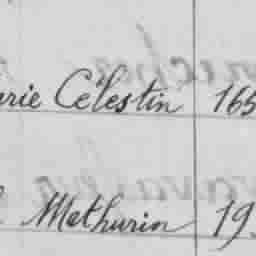 rie Célestin 165
Mathurin 19